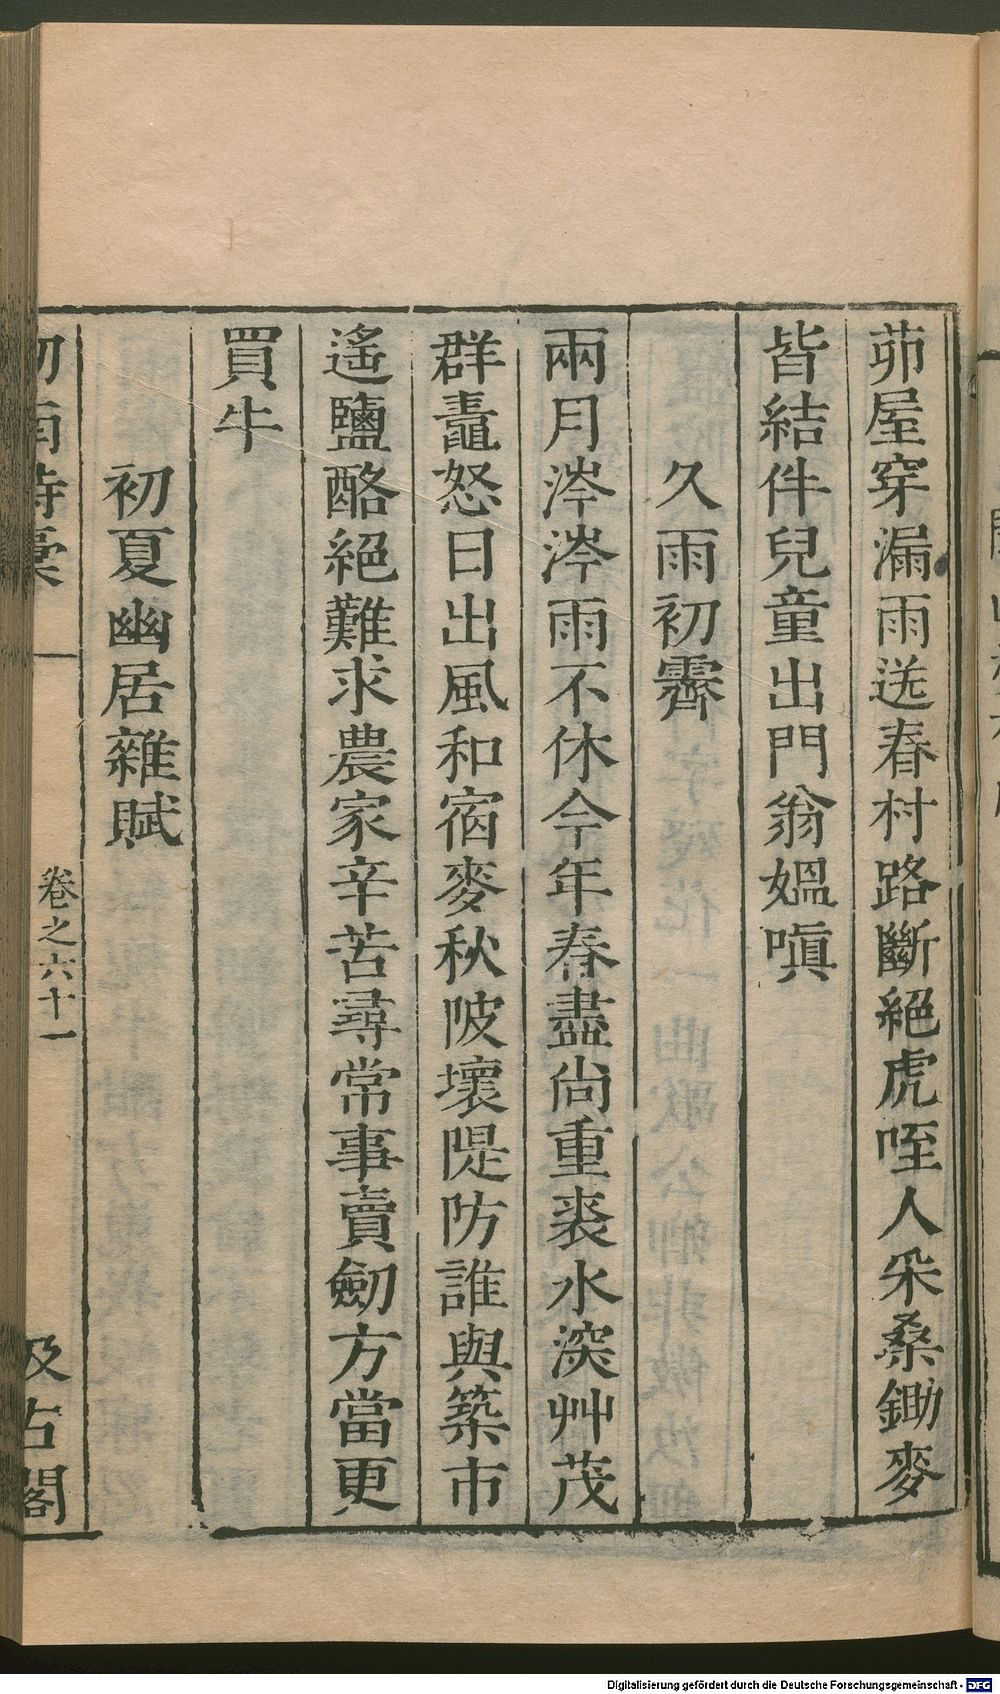 茆屋穿漏雨送春村路斷絕虎咥人采桑鋤麥
皆結伴兒童出門翁媼嗔
久雨初霽
兩月涔涔雨不休今年春盡尚重裘水深艸茂
群鼃怒日出風和宿麥秋陂壞隄防誰與築市
遙鹽酪絕難求農家辛苦尋常事賣劒方當更
買牛
初夏幽居雜賦
卷之六十一
汲古閣
Digitalisierung gefördert durch die Deutsche Forschungsgemeinschaft - DFG